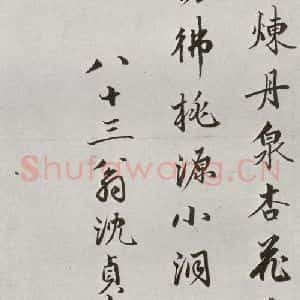 煉丹泉杏花
彿桃源小洞
八十三翁沈貞
Shufawang.CN